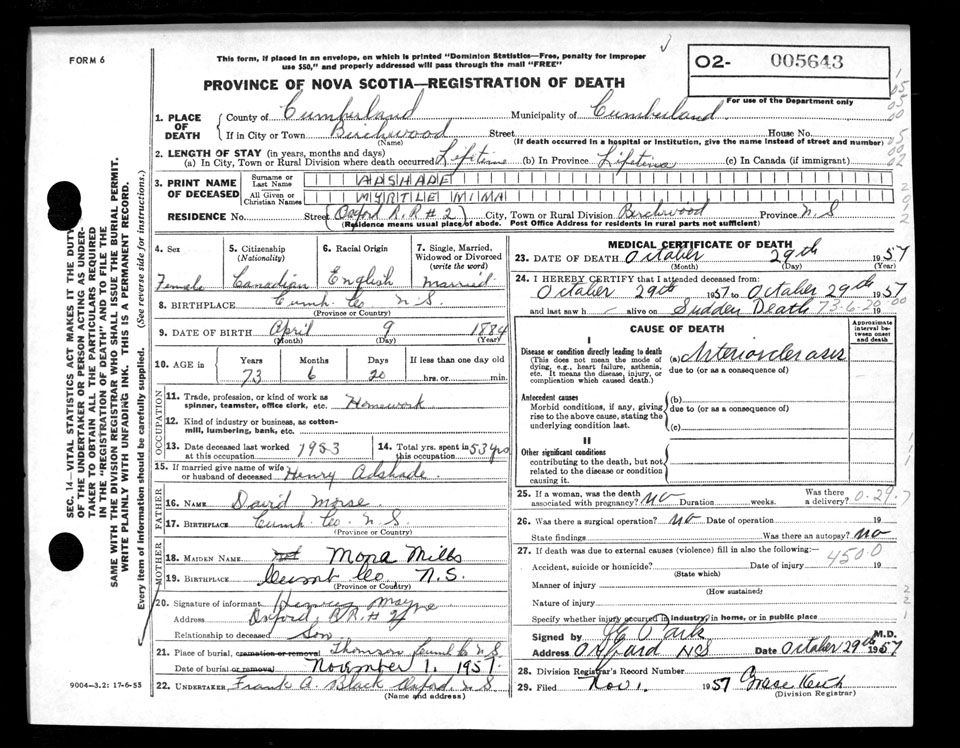 FORM 6
This form, if placed in an envelope, on which is printed "Dominion Statistics—Free, penalty for improper
use $50," and properly addressed will pass through the mail "FREE"
02- 005643
PROVINCE OF NOVA SCOTIA—REGISTRATION OF DEATH
For use of the Department only
1. PLACE OF DEATH
County of Cumberland Municipality of Cumberland
If in City or Town Birchwood Street House No.
(Name) (If death occurred in a hospital or institution, give the name instead of street and number)
2. LENGTH OF STAY (in years, months and days)
(a) In City, Town or Rural Division where death occurred Lifetime (b) In Province Lifetime (c) In Canada (if immigrant)
3. PRINT NAME OF DECEASED
Surname or Last Name ADSHADE
All Given or Christian Names MYRTLE MIMA
RESIDENCE No. Street Oxford R.R # 2 City, Town or Rural Division Birchwood Province N S
(Residence means usual place of abode. Post Office Address for residents in rural parts not sufficient)
4. Sex Female
5. Citizenship (Nationality) Canadian
6. Racial Origin English
7. Single, Married, Widowed or Divorced (write the word) Married
8. BIRTHPLACE Cumb. Co N. S.
(Province or Country)
9. DATE OF BIRTH April 9 1884
(Month) (Day) (Year)
10. AGE in Years Months Days If less than one day old
73 6 20 hrs. or min.
OCCUPATION
11. Trade, profession, or kind of work as
spinner, teamster, office clerk, etc. Homework
12. Kind of industry or business, as cotton-
mill, lumbering, bank, etc.
13. Date deceased last worked at this occupation 1953
14. Total yrs. spent in this occupation 53 yrs
15. If married give name of wife or husband of deceased Henry Adshade
FATHER
16. NAME David Morse
17. BIRTHPLACE Cumb. Co. N. S.
(Province or Country)
MOTHER
18. MAIDEN NAME Mona Mills
19. BIRTHPLACE Cumb Co, N.S.
(Province or Country)
20. Signature of informant
Address Oxford, R.R. # 2
Relationship to deceased Son
21. Place of burial, cremation or removal Thomson Cumb Co N S
Date of burial or removal November 1, 1957.
22. UNDERTAKER Frank A. Black Oxford, N S
(Name and address)
MEDICAL CERTIFICATE OF DEATH
23. DATE OF DEATH October 29th 1957
(Month) (Day) (Year)
24. I HEREBY CERTIFY that I attended deceased from:
October 29th 1957 to October 29th 1957
and last saw h alive on Sudden Death 19
73-6-20-00
CAUSE OF DEATH
Approximate interval between onset and death
I
Disease or condition directly leading to death
(This does not mean the mode of
dying, e.g., heart failure, asthenia,
etc. It means the disease, injury, or
complication which caused death.)
(a) Arteriosclerosis
due to (or as a consequence of)
Antecedent causes
Morbid conditions, if any, giving
rise to the above cause, stating the
underlying condition last.
(b)
due to (or as a consequence of)
(c)
II
Other significant conditions
contributing to the death, but not
related to the disease or condition
causing it.
25. If a woman, was the death associated with pregnancy? No Duration weeks. Was there a delivery?
0-29-7
26. Was there a surgical operation? no Date of operation 19
State findings Was there an autopsy? No
27. If death was due to external causes (violence) fill in also the following:—
4500
Accident, suicide or homicide? Date of injury 19
(State which)
Manner of injury
(How sustained)
Nature of injury
Specify whether injury occurred in industry, in home, or in public place
Signed by M.D.
Address Oxford NS Date October 29th 1957
28. Division Registrar's Record Number
29. Filed Nov 1. 1957
(Division Registrar)
SEC. 14—VITAL STATISTICS ACT MAKES IT THE DUTY
OF THE UNDERTAKER OR PERSON ACTING AS UNDER-
TAKER TO OBTAIN ALL THE PARTICULARS REQUIRED
IN THE "REGISTRATION OF DEATH" AND TO FILE THE
SAME WITH THE DIVISION REGISTRAR WHO SHALL ISSUE THE BURIAL PERMIT.
WRITE PLAINLY WITH UNFADING INK. THIS IS A PERMANENT RECORD.
Every item of information should be carefully supplied. (See reverse side for instructions.)
9004-3.2: 17-6-55